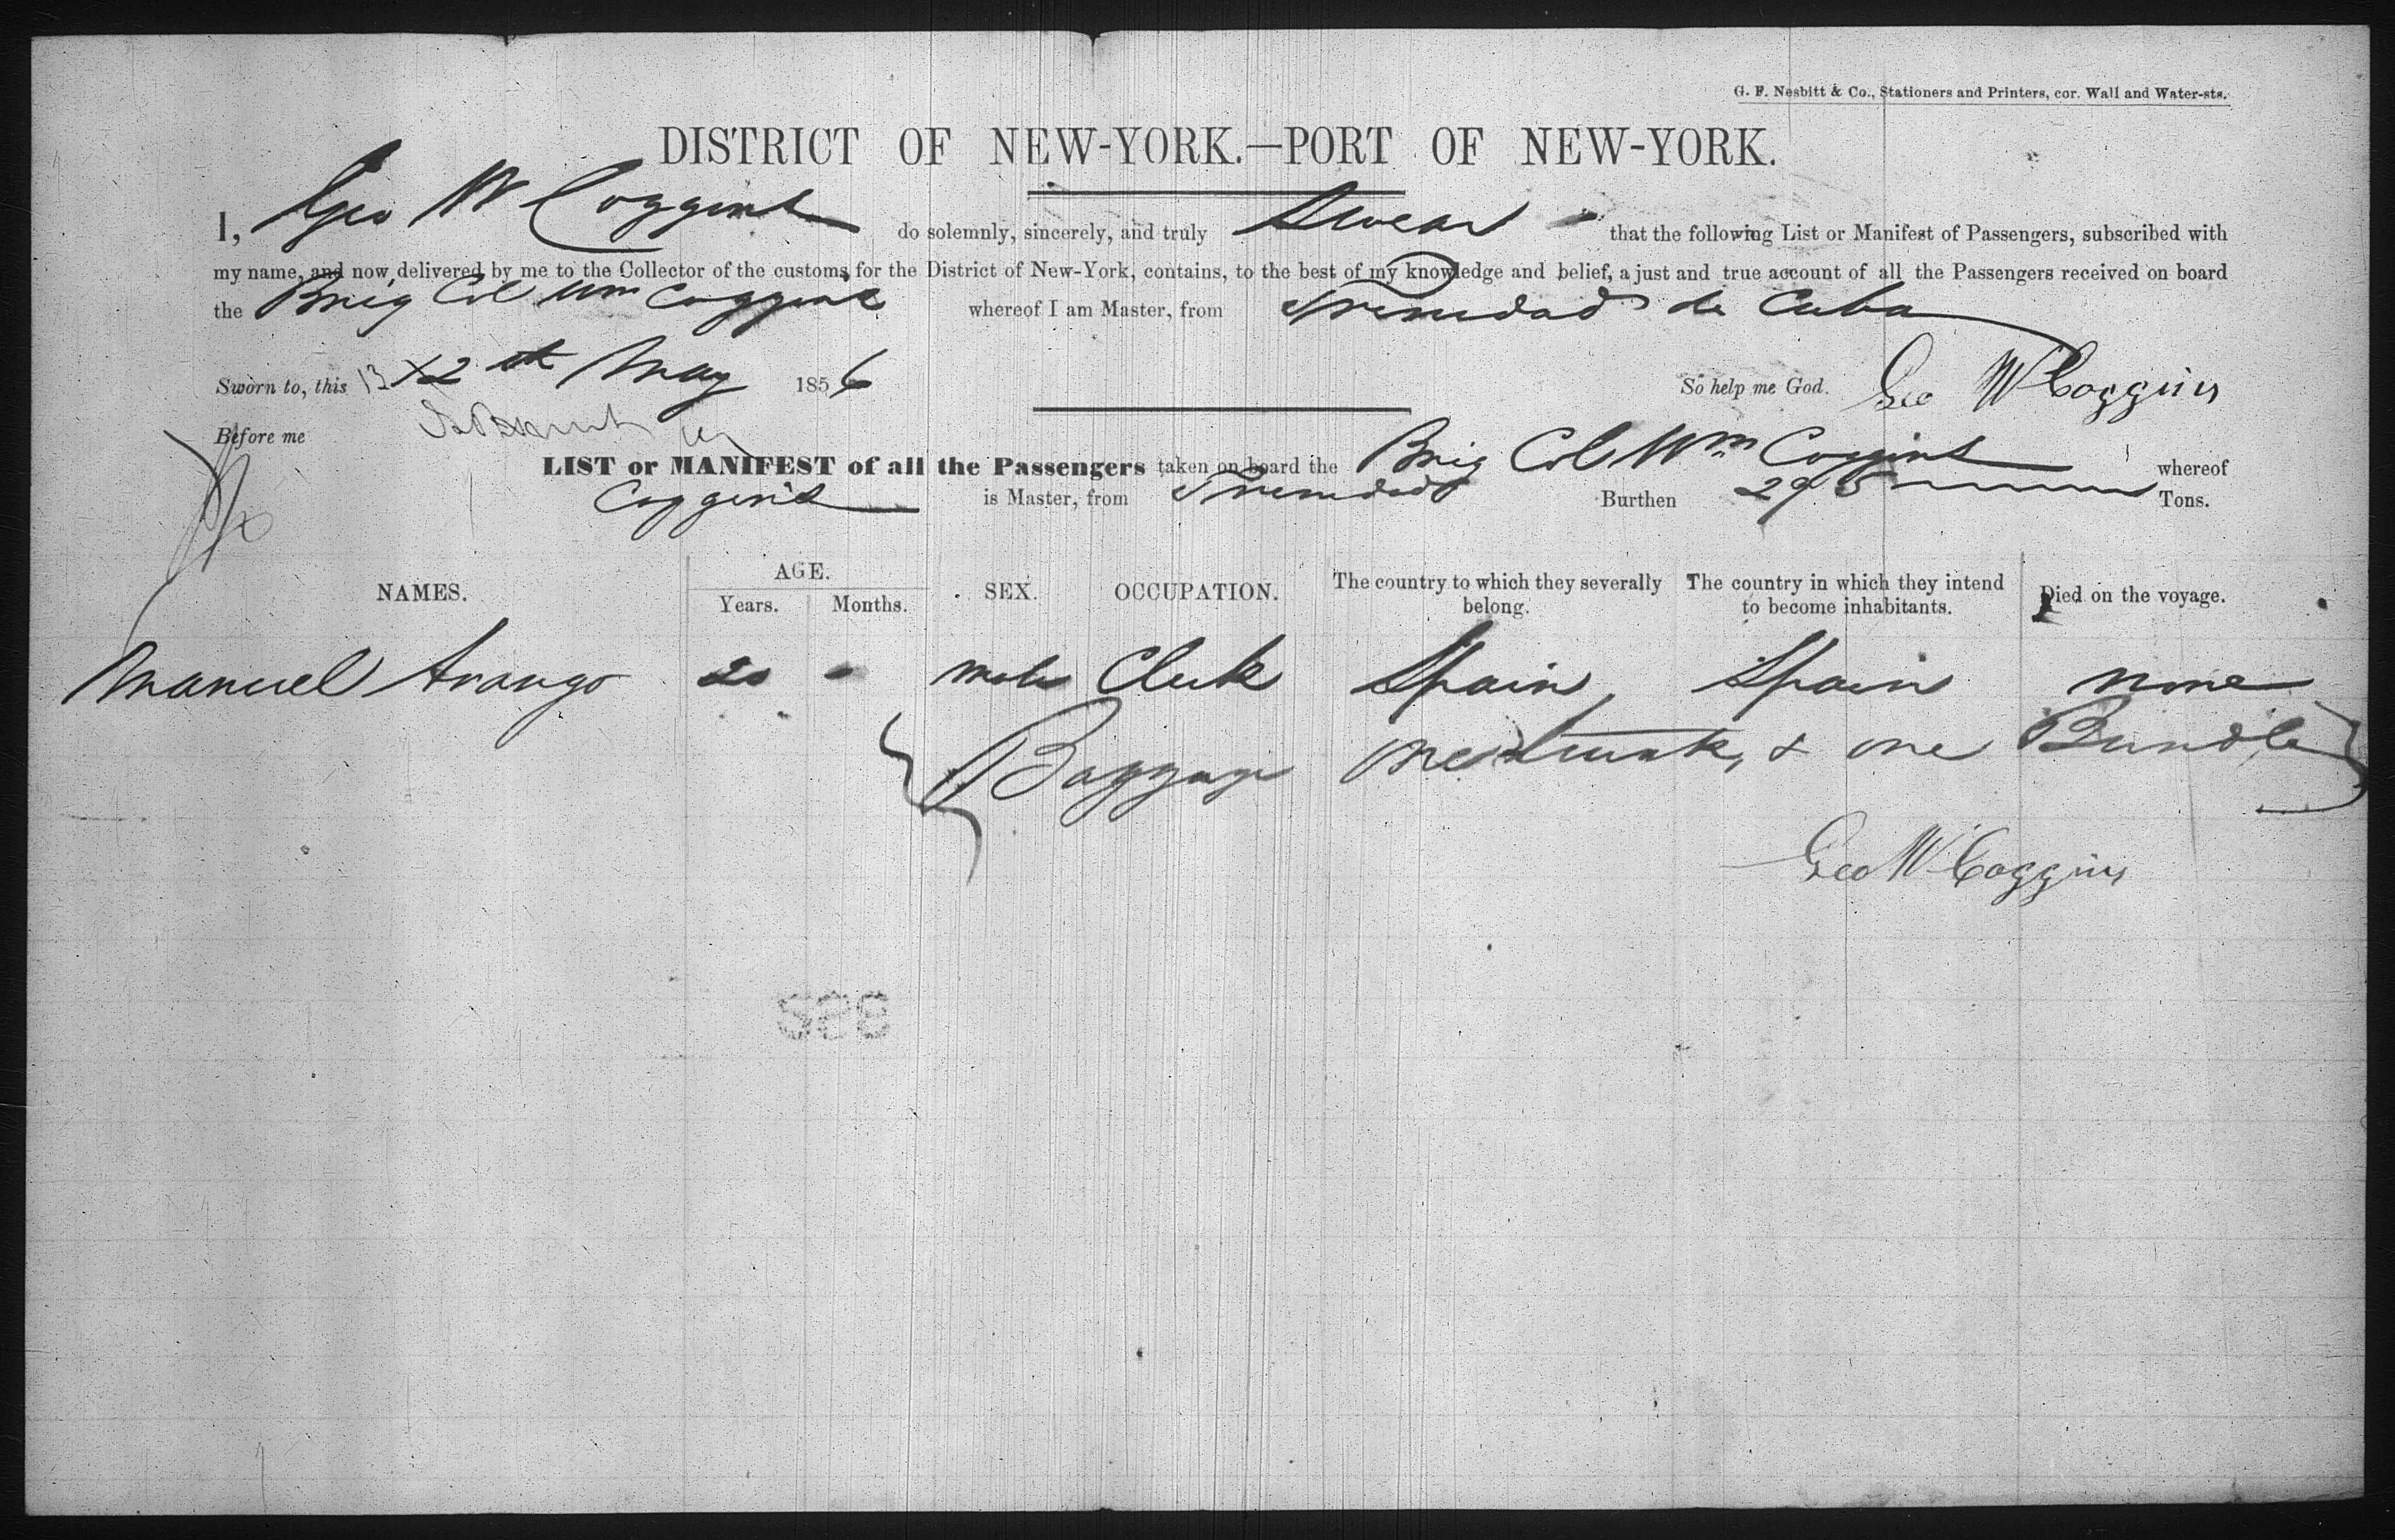 G. F. Nesbitt & Co., Stationers and Printers, cor. Wall and Water-sts.
DISTRICT OF NEW-YORK.—PORT OF NEW-YORK.
I, Geo W Coggins do solemnly, sincerely, and truly Swear that the following List or Manifest of Passengers, subscribed with
my name, and now delivered by me to the Collector of the customs for the District of New-York, contains, to the best of my knowledge and belief, a just and true account of all the Passengers received on board
the Brig Col Wm Coggins whereof I am Master, from Trinidad de Cuba
Sworn to, this 13 12th May 1856 So help me God. Geo W Coggins
Before me
LIST or MANIFEST of all the Passengers taken on board the Brig Col Wm Coggins whereof
Coggins is Master, from Trinidad Burthen 295 Tons.
NAMES. AGE. Years. Months. SEX. OCCUPATION. The country to which they severally belong. The country in which they intend to become inhabitants. Died on the voyage.
Manuel Arango 20 - male Clerk Spain, Spain none
Baggage one trunk, & one Bundle
Geo W Coggins